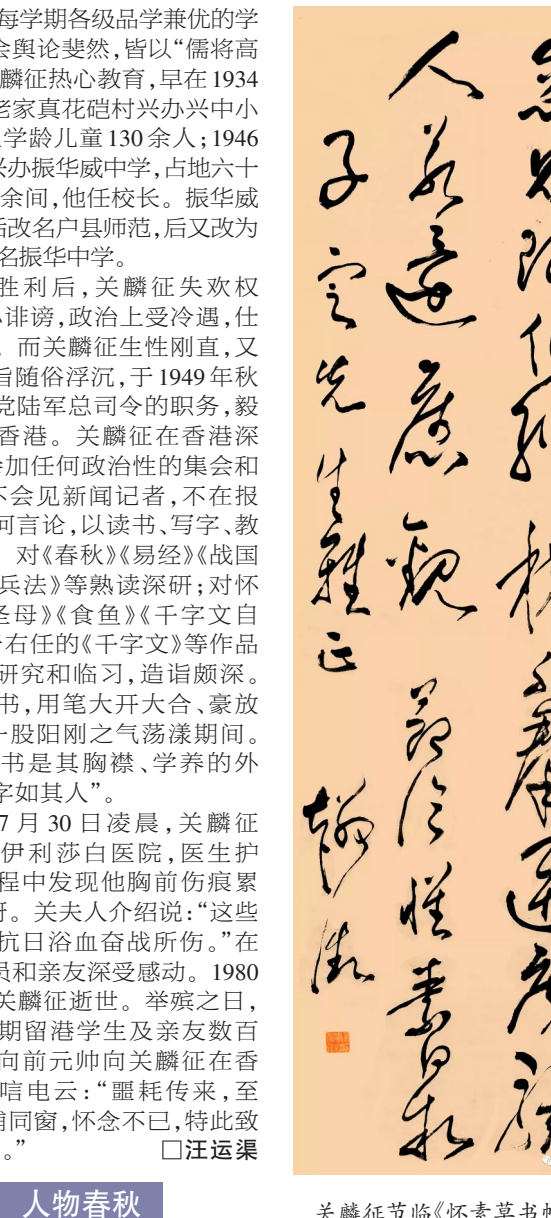 每学期各级品学兼优的学
会舆论斐然,皆以“儒将高
麟征热心教育,早在1934
老家真花硙村兴办兴中小
学龄儿童130余人;1946
兴办振华威中学,占地六十
余间,他任校长。振华威
后改名户县师范,后又改为
名振华中学。
胜利后,关麟征失欢权
诽谤,政治上受冷遇,仕
。而关麟征生性刚直,又
旨随俗浮沉,于1949年秋
党陆军总司令的职务,毅
香港。关麟征在香港深
参加任何政治性的集会和
不会见新闻记者,不在报
何言论,以读书、写字、教
对《春秋》《易经》《战国
兵法》等熟读深研;对怀
圣母》《食鱼》《千字文自
于右任的《千字文》等作品
研究和临习,造诣颇深。
书,用笔大开大合、豪放
一股阳刚之气荡漾期间。
书是其胸襟、学养的外
字如其人”。
7月30日凌晨,关麟征
伊利莎白医院,医生护
程中发现他胸前伤痕累
。关夫人介绍说:“这些
抗日浴血奋战所伤。”在
员和亲友深受感动。1980
关麟征逝世。举殡之日,
期留港学生及亲友数百
向前元帅向关麟征在香
唁电云:“噩耗传来,至
埔同窗,怀念不已,特此致
。” □汪运渠
人物春秋
人若遇広観 节临怀素自叙
子定先生雅正 麟征
关麟征节临《怀素草书帖